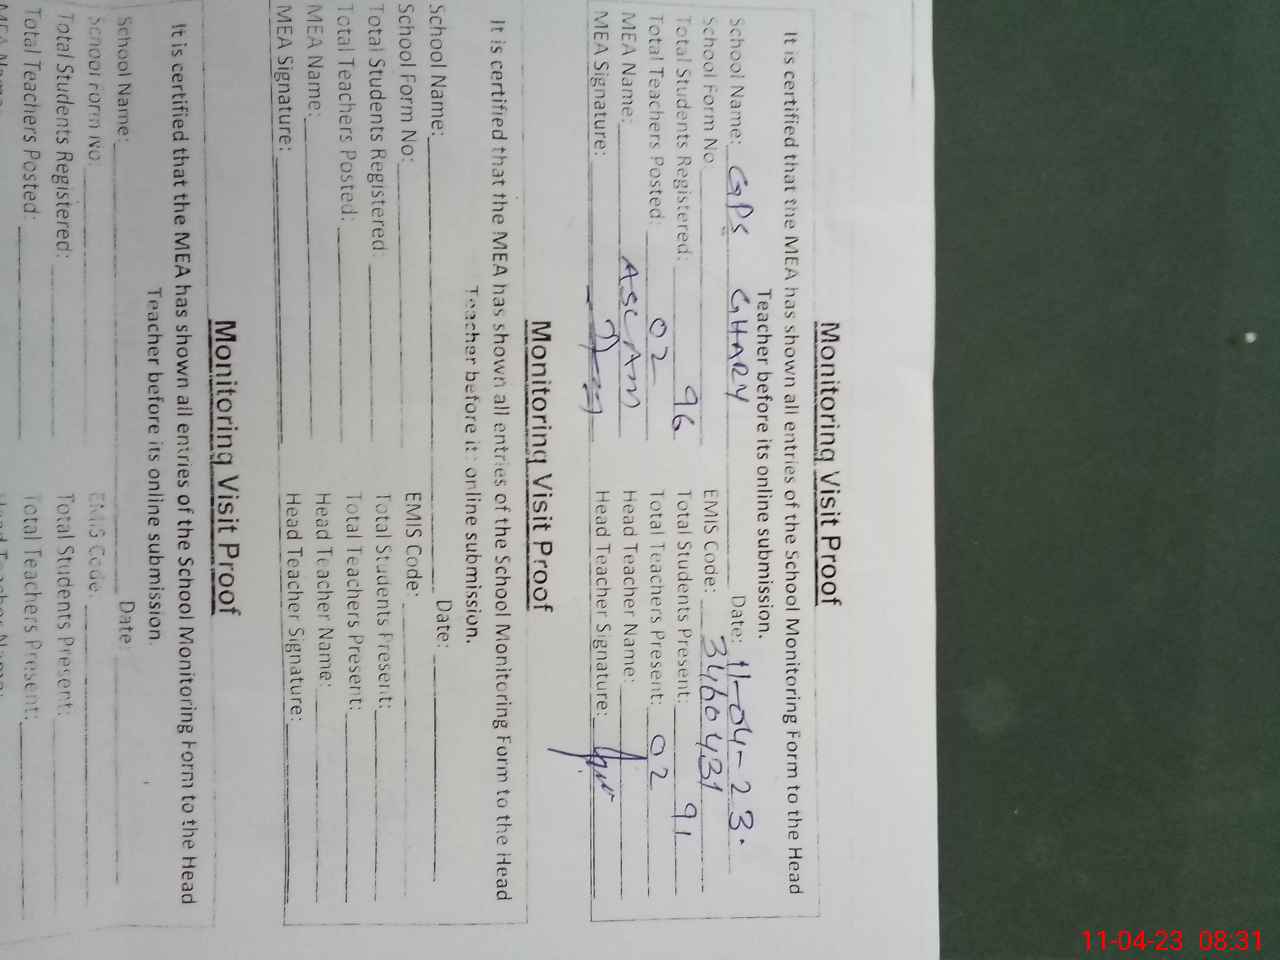 Monitoring Visit Proof
It is certified that the MEA has shown all entries of the School Monitoring Form to the Head
Teacher before its online submission.
School Name: GPS GHARY Date: 11-04-23.
School Form No EMIS Code: 3460431
Total Students Registered: 96 Total Students Present: 91
Total Teachers Posted: 02 Total Teachers Present: 02
MEA Name: ASLAM Head Teacher Name:
MEA Signature: Head Teacher Signature:
Monitoring Visit Proof
It is certified that the MEA has shown all entries of the School Monitoring Form to the Head
Teacher before its online submission.
School Name: Date:
School Form No: EMIS Code:
Total Students Registered: Total Students Present:
Total Teachers Posted: Total Teachers Present:
MEA Name: Head Teacher Name:
MEA Signature: Head Teacher Signature:
Monitoring Visit Proof
It is certified that the MEA has shown all entries of the School Monitoring Form to the Head
Teacher before its online submission.
School Name: Date:
School Form No: EMIS Code:
Total Students Registered: Total Students Present:
Total Teachers Posted: Total Teachers Present:
MEA Name: Head Teacher Name:
11-04-23 08:31